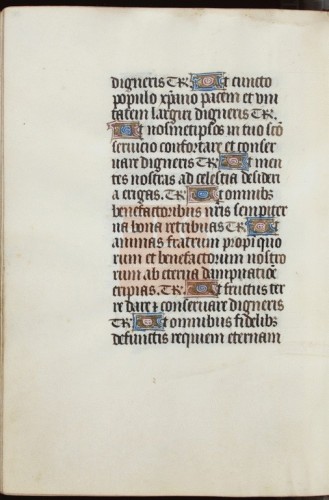 digneris Te R. Ut cuncto
populo xpiano pacem et uni
tatem largiri digneris Te R.
Ut nosmetipsos in tuo sco
servicio confortare et conser
vare digneris Te R. Ut men
tes nostras ad celestia desideri
a erigas. Te R. Ut omnibus
benefactoribus nris sempiter
na bona retribuas Te R. Ut
animas fratrum propi quo
rum et benefactorum nostro
rum ab eterna dampnatioe
eripias. Te R. Ut fructus ter
re dare ⁊ conservare digneris
Te R. Ut omnibus fidelibs
defunctis requiem eternam